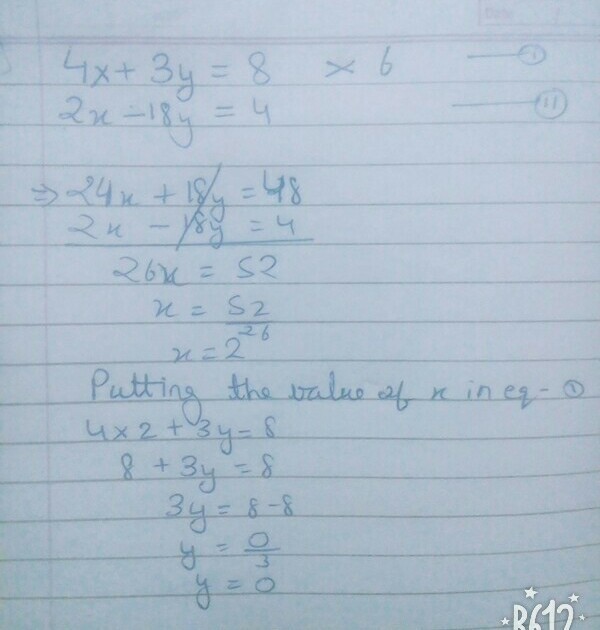 4x + 3y = 8 × 6 — (i)
2x - 18y = 4 — (ii)
⇒ 24x + 18y = 48
2x - 18y = 4
26x = 52
x = 52
26
x = 2
Putting the value of x in eq- (i)
4×2 + 3y = 8
8 + 3y = 8
3y = 8-8
y = 0
3
y = 0
R612